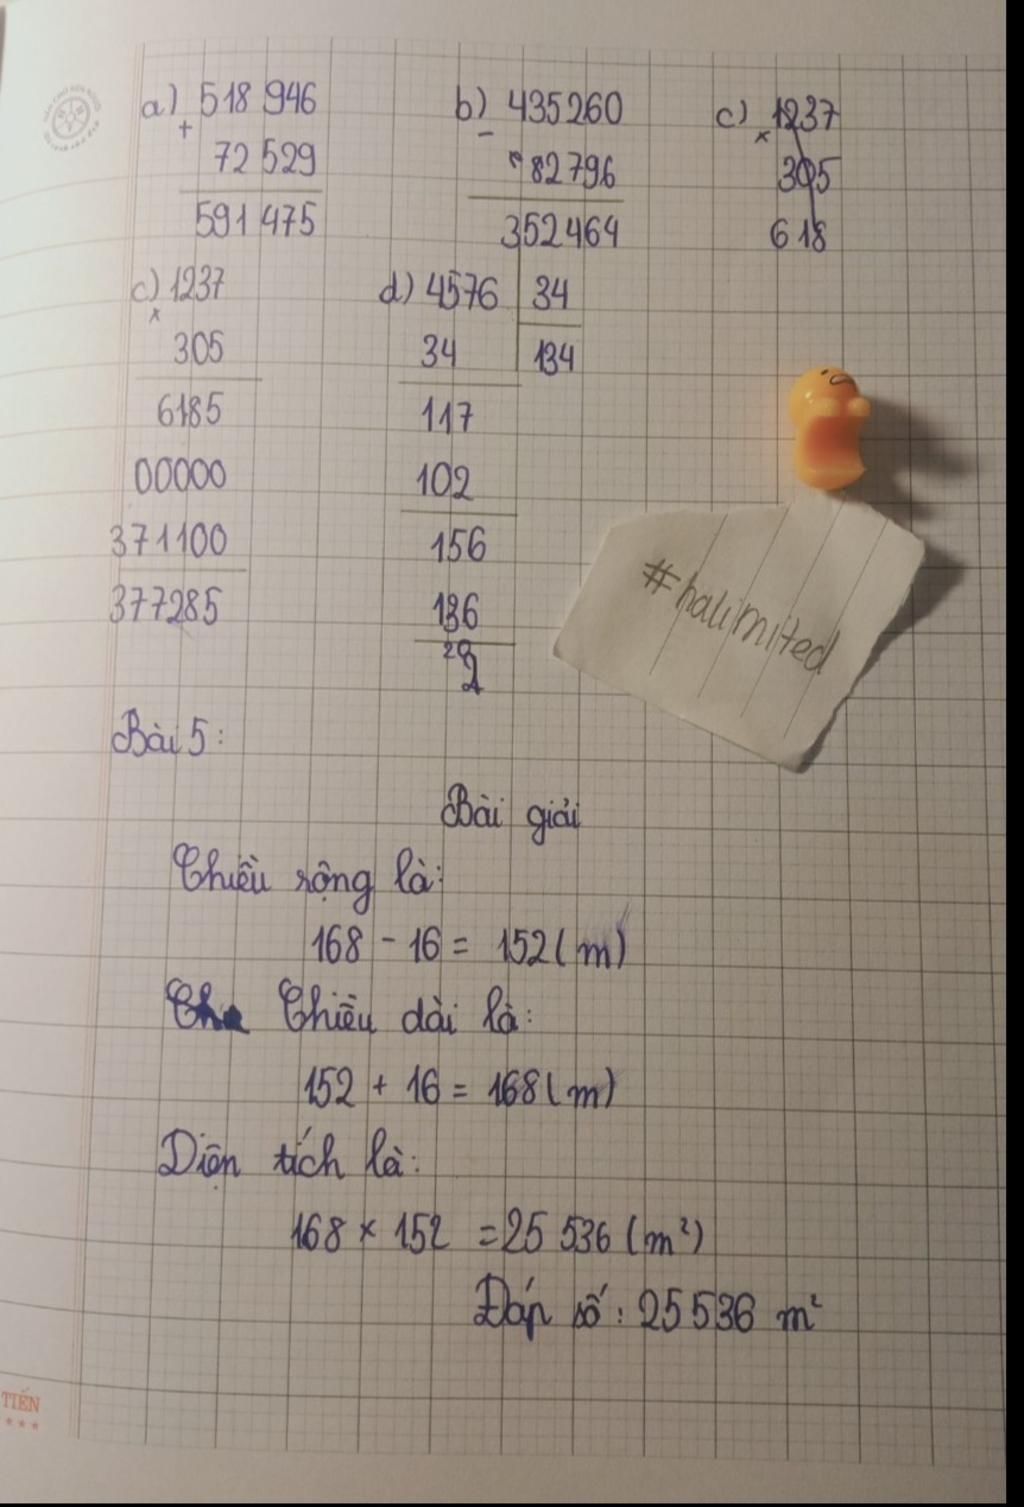 a) 518 946
+
72 529
591 475
b) 435260
-
82796
352464
c) 1237
×
305
618
c) 1237
×
305
6185
00000
371100
377285
d) 4576 34
34 134
117
102
156
136
20
Bài 5:
Bài giải
Chiều rộng là:
168 - 16 = 152 (m)
Chiều dài là:
152 + 16 = 168 (m)
Diện tích là:
168 × 152 = 25 536 (m²)
Đáp số: 25536 m²
#halimited
TIẾN